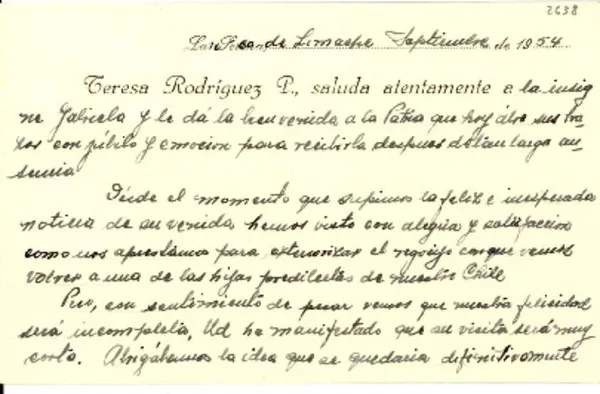 2638
de Limache Septiembre de 1954
Teresa Rodríguez P., saluda atentamente a la insig
ne Gabriela y le dá la bienvenida a la Patria que hoy ábre sus bra
zos con júbilo y emocion para recibirla despues de tan larga au-
sencia
Desde el momento que supimos la feliz e inesperada
noticia de su venida hemos visto con alegria y satisfaccion
como nos aprestamos para exteriorizar el regocijo con que vemos
volver a una de las hijas predilectas de nuestro Chile
Pero, con sentimiento de pesar vemos que nuestra felicidad
será incompleta, Ud ha manifestado que su visita será muy
corta. Abrigábamos la idea que se quedaria definitivamente